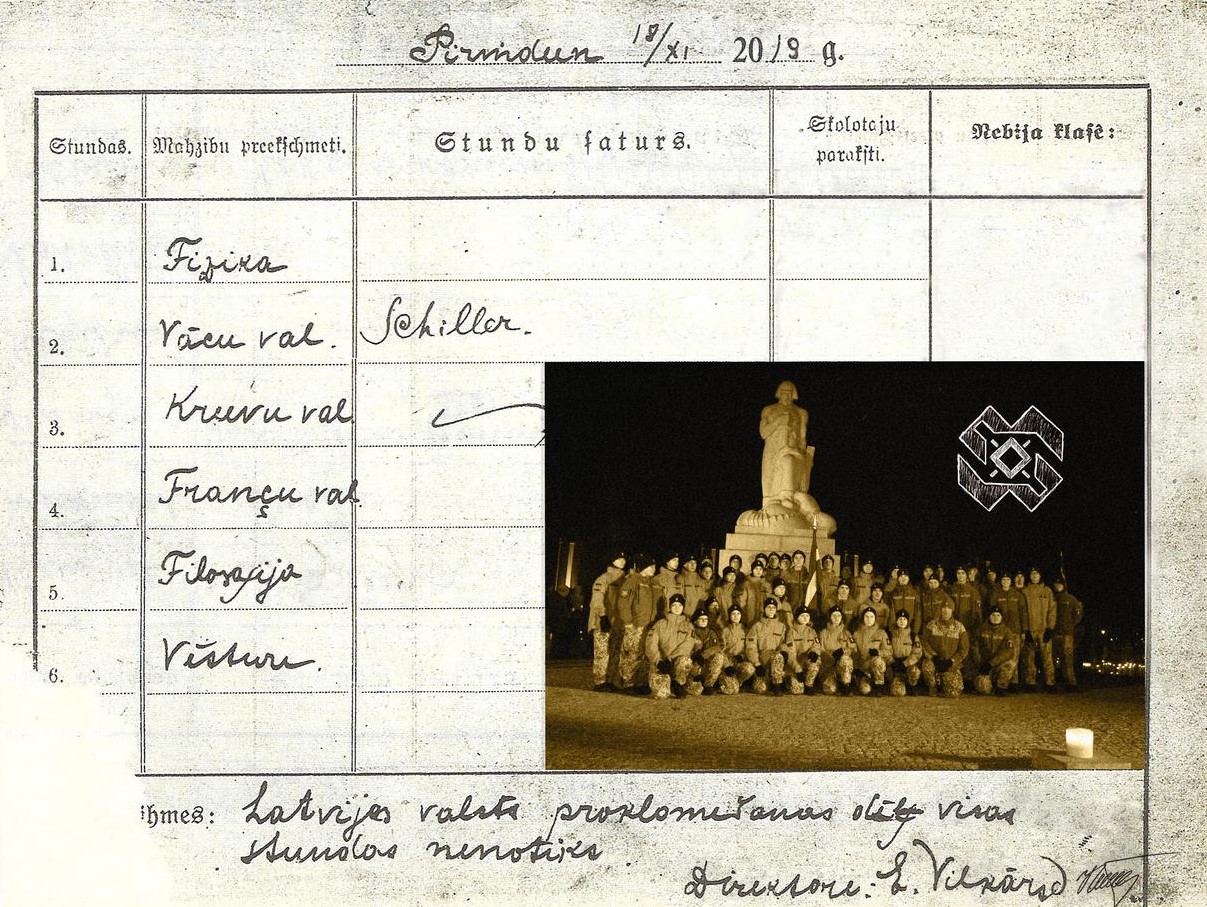 Pirmdien 18/XI 2019 g.
Stundas. Mahzibu preekſchmeti. Stundu ſaturs. Skolotaju parakſti. Nebija klaſē:
1. Fizika
2. Vācu val. Schiller.
3. Krievu val
4. Françu val
5. Filozofija
6. Vēsture.
ihmes: Latvijas valsts proklomēšanas dēļ visas
stundas nenotiks
Direktore: E. Vilkārse